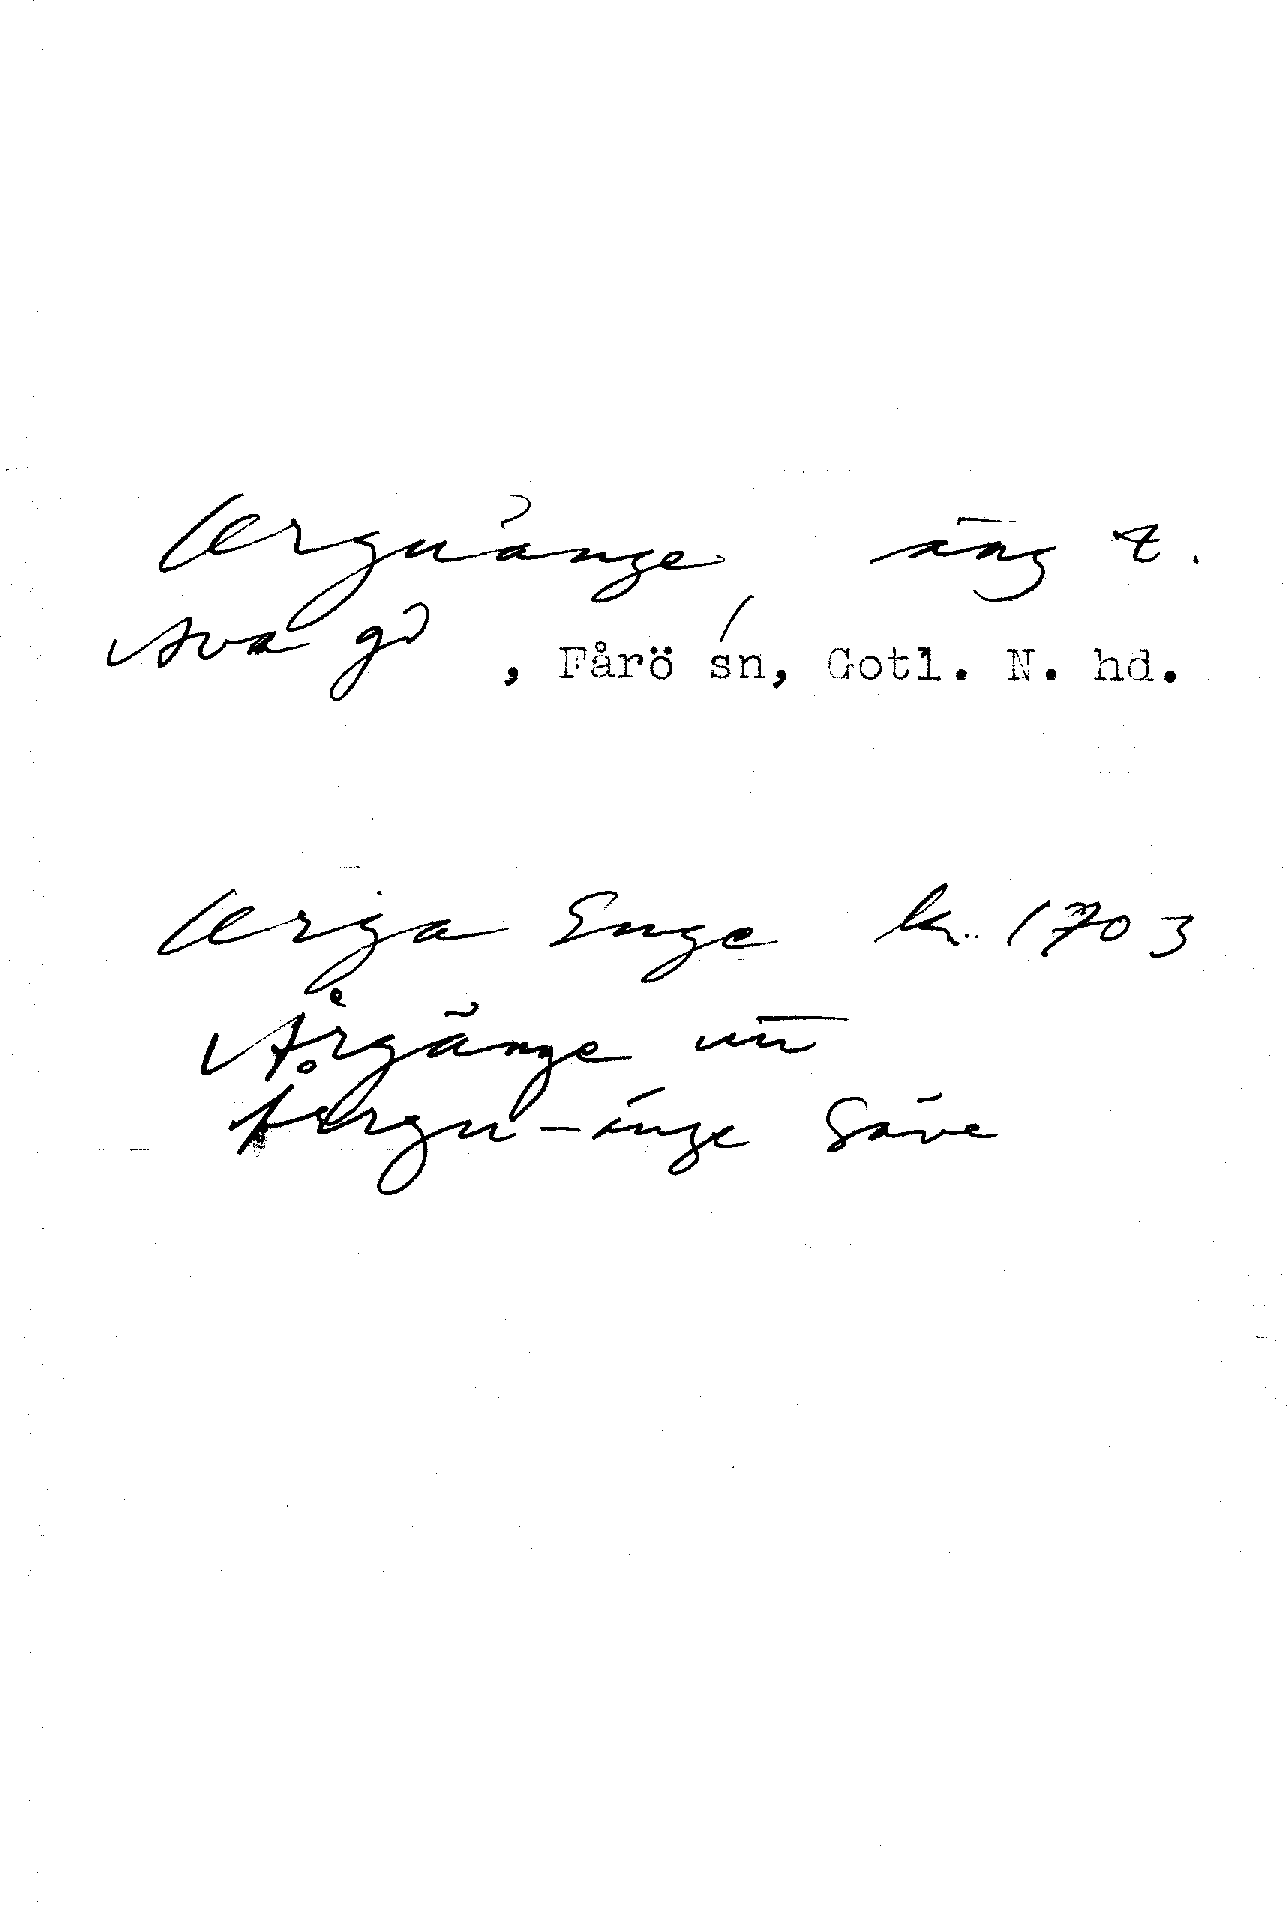 Arguänge äng t.
Ava gd , Fårö sn, Gotl. N. hd.
Arga Enge k. 1703
Årgänge
Argu-änge Säve